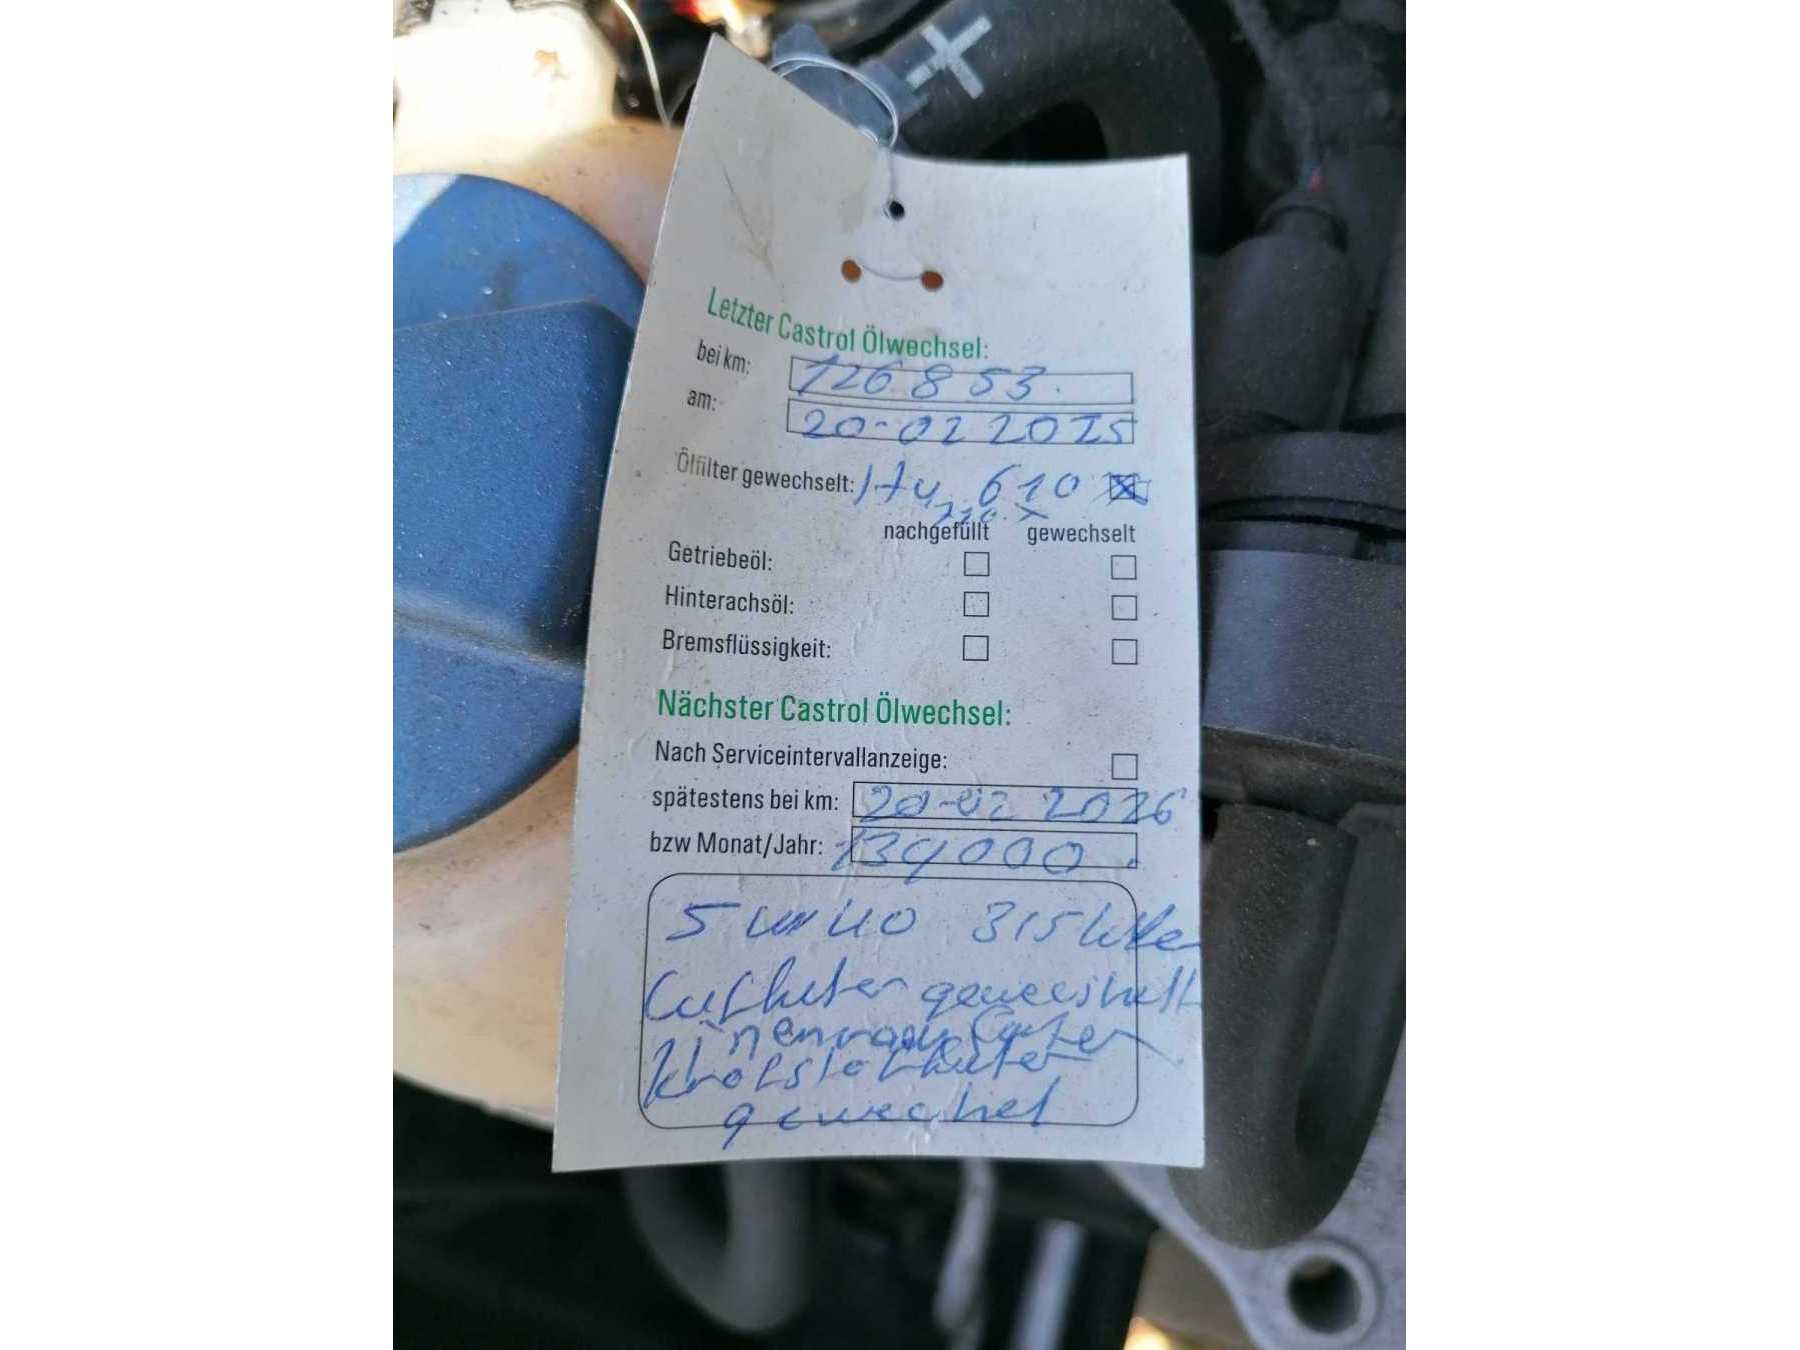 Letzter Castrol Ölwechsel:
bei km: 126853.
am: 20-02 2025
Ölfilter gewechselt: Hu 610 X
nachgefüllt gewechselt
Getriebeöl:
Hinterachsöl:
Bremsflüssigkeit:
Nächster Castrol Ölwechsel:
Nach Serviceintervallanzeige:
spätestens bei km: 20-02 2026
bzw Monat/Jahr: 139000.
5 W 40 3,5
gewechselt
gewechsel